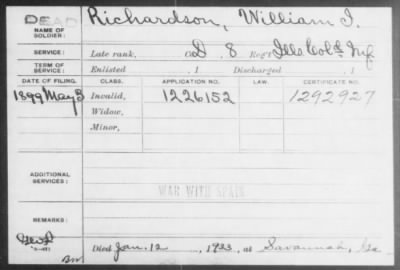 DEAD
NAME OF SOLDIER: Richardson, William I.
SERVICE: Late rank, Co. D, 8 Reg't Ills Col'd Inf
TERM OF SERVICE: Enlisted , 1 Discharged , 1
DATE OF FILING. CLASS. APPLICATION NO. LAW. CERTIFICATE NO.
1899 May 3 Invalid, 1226152 1292927
Widow,
Minor,
ADDITIONAL SERVICES:
WAR WITH SPAIN
REMARKS:
Died Jan. 12, 1933, at Savannah, Ga